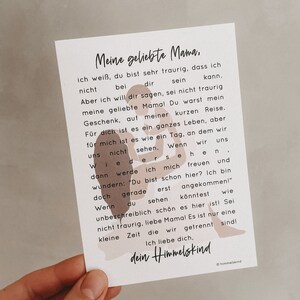 Meine geliebte Mama,
ich weiß, du bist sehr traurig, dass ich
nicht bei dir sein kann.
Aber ich will dir sagen, sei nicht traurig
meine geliebte Mama! Du warst mein
Geschenk, auf meiner kurzen Reise.
Für dich ist es ein ganzes Leben, aber
für mich ist es wie ein Tag, an dem wir
uns nicht sehen. Wenn wir uns
wiedersehen,
dann werde ich mich freuen und
wundern: "Du bist schon hier? Ich bin
doch gerade erst angekommen!"
Wenn du sehen könntest wie
unbeschreiblich schön es hier ist! Sei
nicht traurig, liebe Mama! Es ist nur eine
kleine Zeit die wir getrennt sind!
Ich liebe dich,
dein Himmelskind